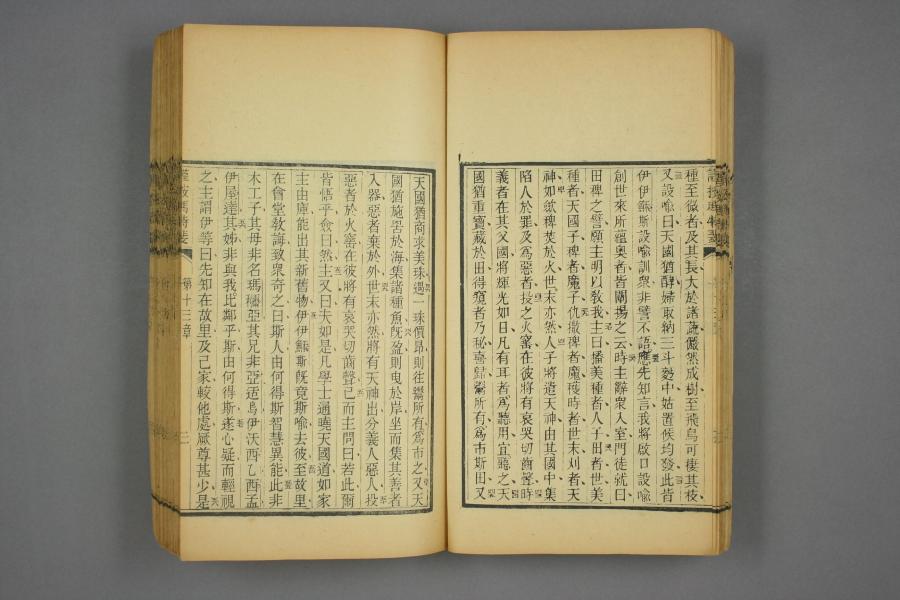 種至微者及其長大於諸蔬儼然成樹至飛鳥可棲其枝
又設喻曰天國猶酵婦取納三斗麪中姑置候均發此皆
伊伊穌斯設喻訓衆非譬不語應先知言我將啟口設喻
創世來所蘊奧者皆闡揚之云時主辭衆入室門徒就曰
田稗之譬願主明以敎我主曰播美種者人子田者世美
種者天國子稗者魔子仇撒稗者魔穫時者世末刈者天
神如斂稗焚於火世末亦然人子將遣天神由其國中集
陷人於罪及爲惡者投之火窰在彼將有哀哭切齒聲時
義者在其父國將輝光如日凡有耳者爲聽用宜聽之天
國猶重寶藏於田得覓者乃秘喜歸鬻所有爲市斯田又
天國猶商求美珠遇一珠價昻則往鬻所有爲市之又天
國猶施罟於海集諸種魚旣盈則曳於岸坐而集其善者
入器惡者棄於外世末亦然將有天神出分義人惡人投
惡者於火窰在彼將有哀哭切齒聲已而主問曰若此爾
皆悟乎僉曰然主又曰夫如是凡學士通曉天國道如家
主由庫能出其新舊物伊伊穌斯旣竟斯喻去彼至故里
在會堂敎誨致衆奇之曰斯人由何得斯智慧異能此非
木工子其母非名瑪麗亞其兄非亞适烏伊沃西乙酉孟
伊屋達其姊非與我比鄰乎斯由何得斯遂心疑而輕視
之主謂伊等曰先知在故里及己家較他處厥尊甚少是
第十三章
三